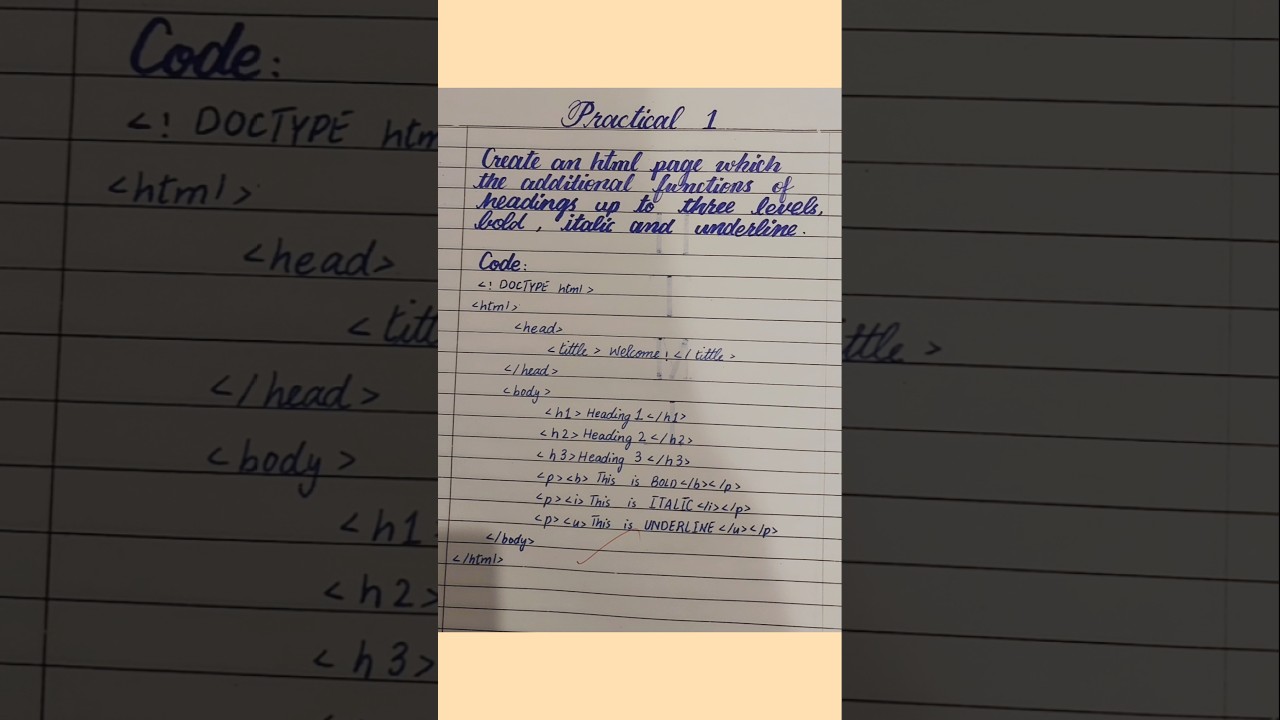 Practical 1
Create an html page which
the additional functions of
headings up to three levels,
bold, italic and underline.
Code:
<! DOCTYPE html>
<html>
<head>
<tittle> Welcome! </tittle>
</head>
<body>
<h1> Heading 1 </h1>
<h2> Heading 2 </h2>
<h3> Heading 3 </h3>
<p><b> This is BOLD </b></p>
<p><i> This is ITALIC </i></p>
<p><u> This is UNDERLINE </u></p>
</body>
</html>
Code:
<! DOCTYPE htm
<html>
<head>
<titt
ttle>
</head>
<body>
<h1
<h2>
<h3>